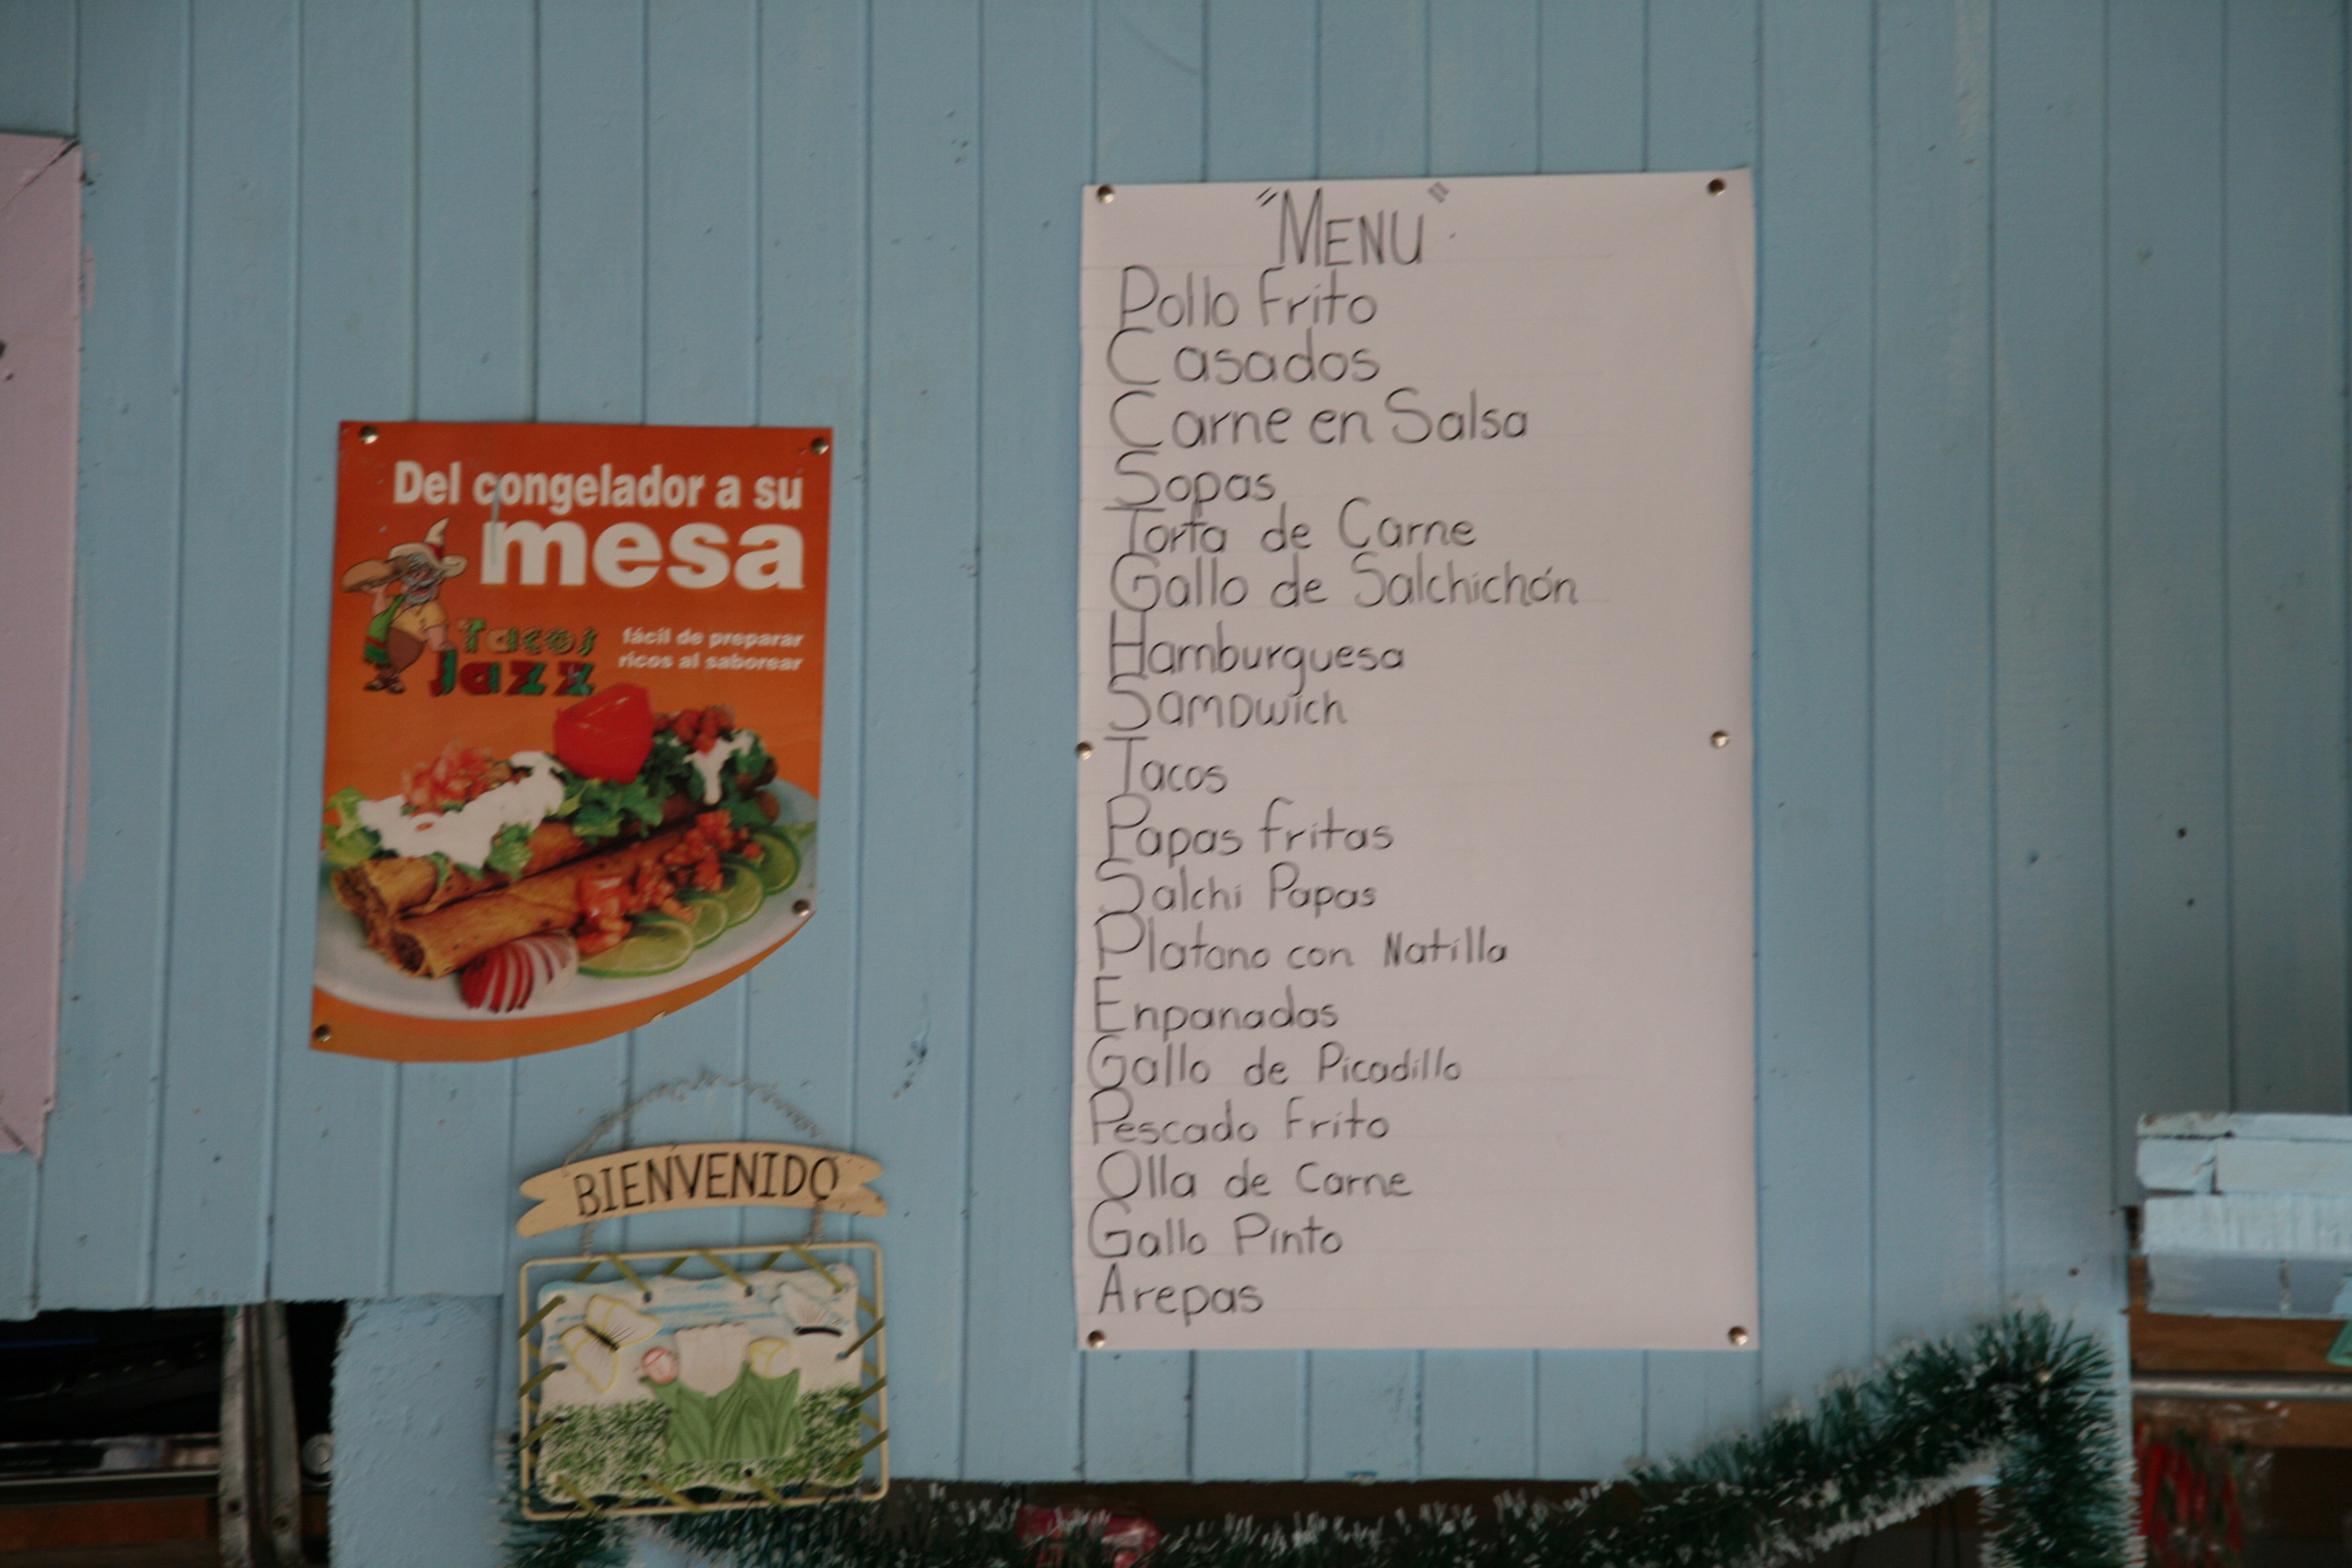 Del congelador a su
mesa
Tacos
Jazz
fácil de preparar
ricos al saborear
BIENVENIDO
"MENU"
Pollo Frito
Casados
Carne en Salsa
Sopas
Torta de Carne
Gallo de Salchichón
Hamburguesa
Samdwich
Tacos
Papas fritas
Salchi Papas
Platano con Natilla
Enpanadas
Gallo de Picadillo
Pescado Frito
Olla de Carne
Gallo Pinto
Arepas